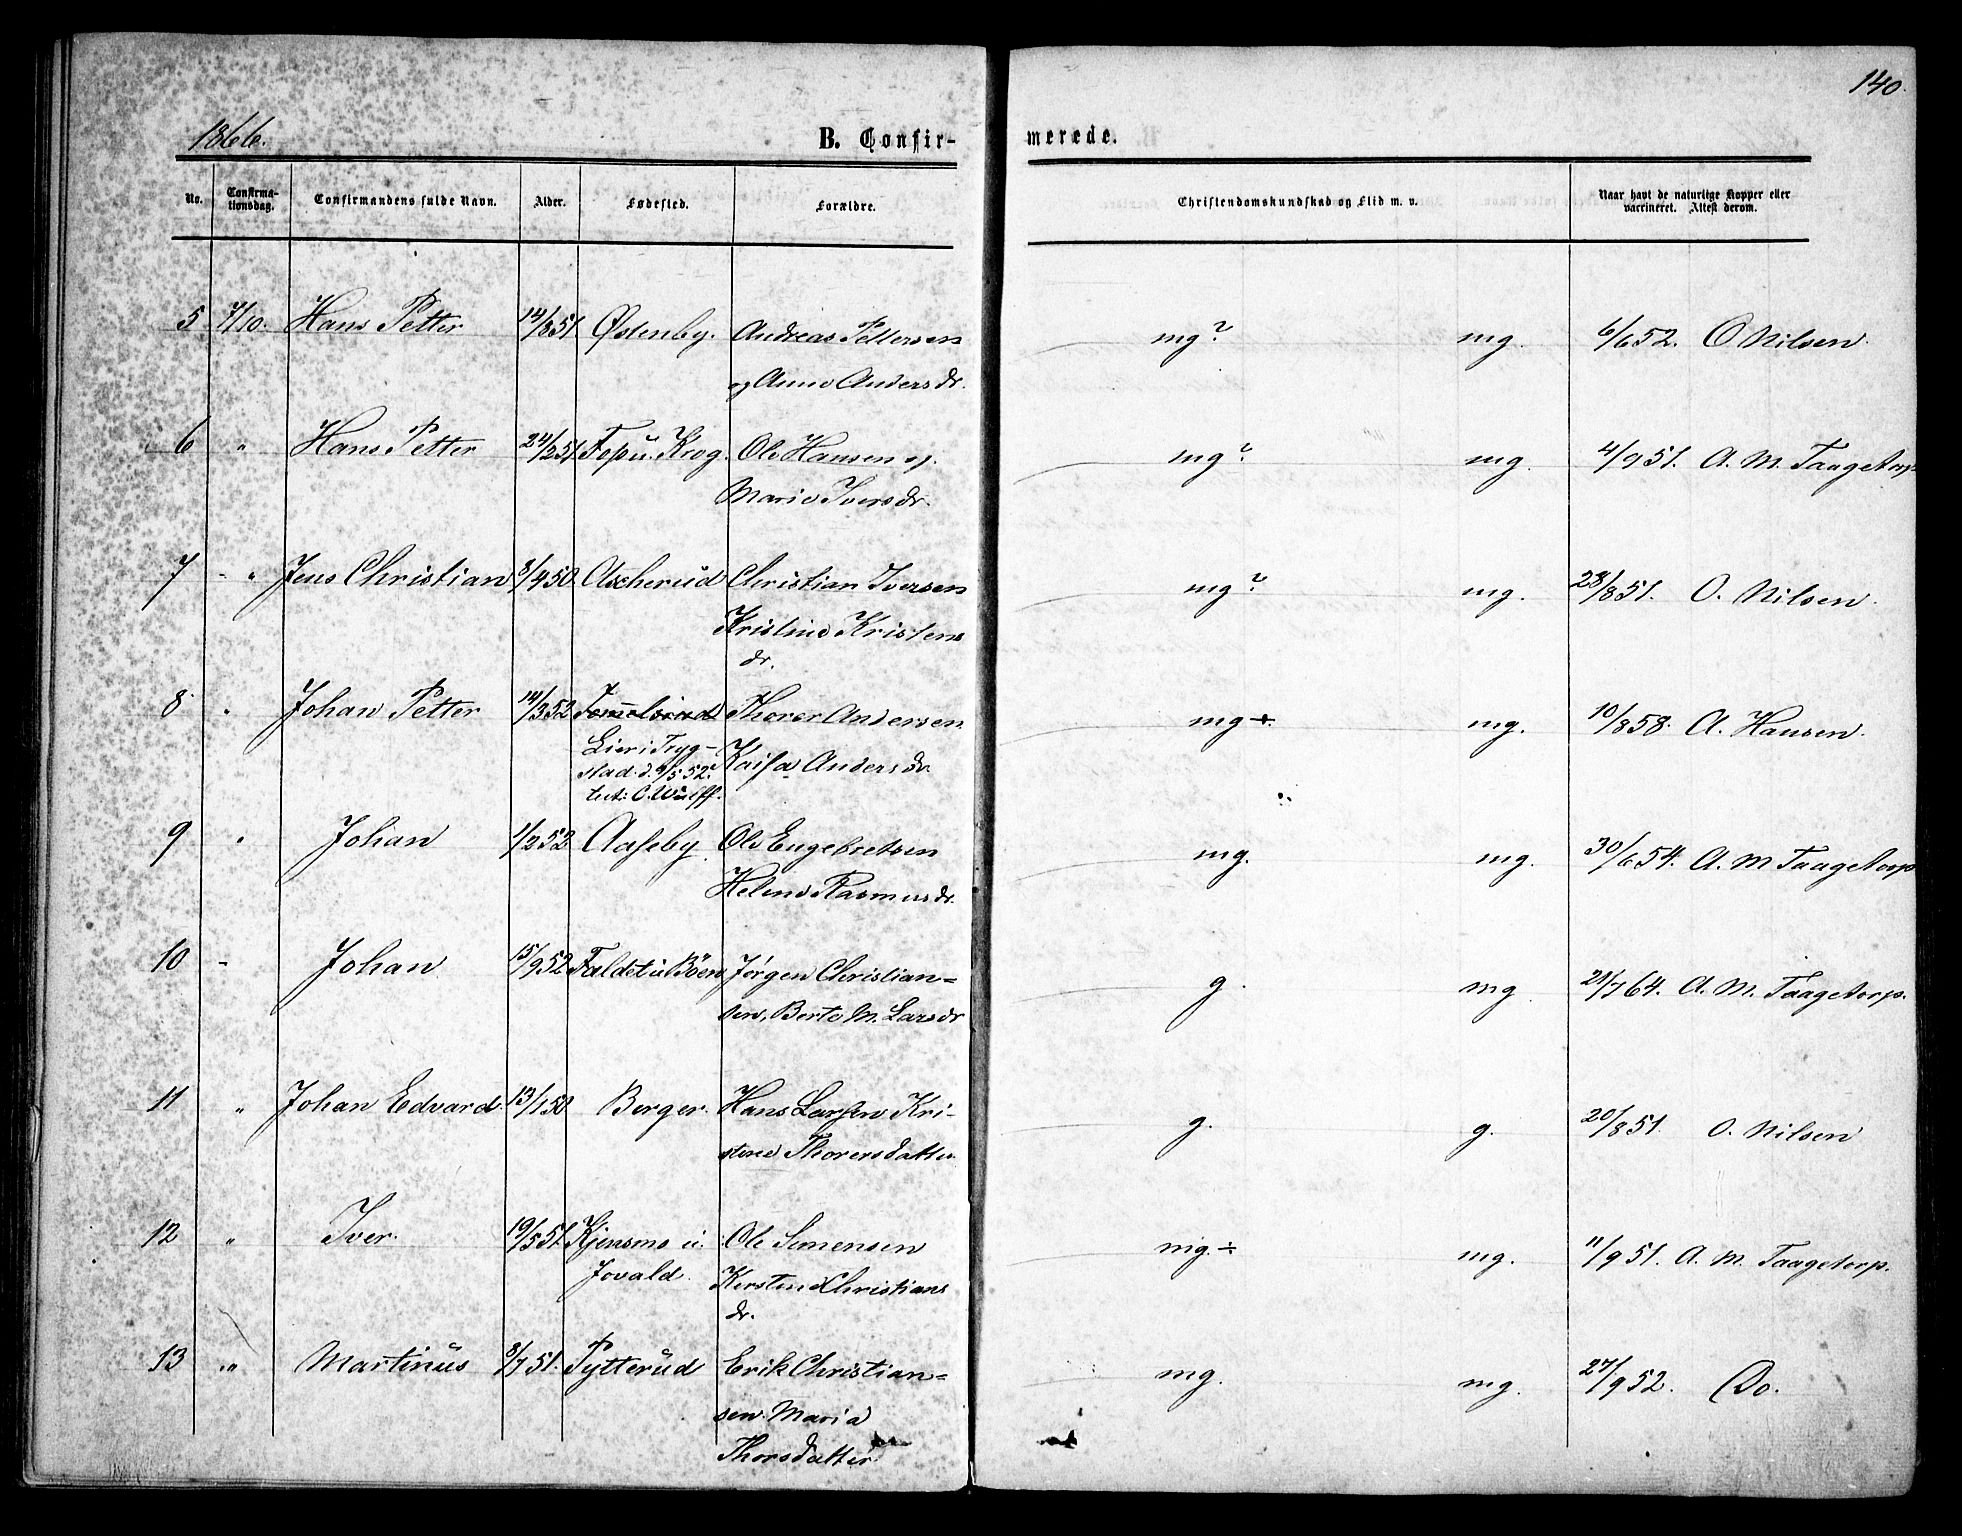 140.
1866.
B. Confir-
merede.
No.
Confirma-
tionsdag.
Confirmandens fulde Navn.
Alder.
Fødested.
Forældre.
Christendomskundskab og Flid m. v.
Naar havt de naturlige Kopper eller
vaccineret. Attest derom.
5 7/10. Hans Petter 14/8 51. Østenby. Andreas Pettersen mg? mg. 6/6 52. O Nilsen.
og Anne Andersdr.
6 " Hans Petter 24/2 51 u. Krog. Ole Hansen og mg? mg. 4/9 51. A. M. Taagetorp
Marie Iversdr.
7 " Jens Christian 8/4 50. Ascherud Christian Iversen mg? mg. 28/8 51. O. Nilsen.
Kristine Kristens
dr.
8 " Johan Petter 14/3 52 Thorer Andersen mg÷ mg. 10/8 58. A. Hansen.
Lier i Tryg-
stad. d. 9/5 52. Kaisa Andersdr.
C. Wulff.
9 " Johan 1/2 52 Aaseby. Ole Engebretsen mg. mg. 30/6 54. A. M Taagetorp
Helene Rasmusdr.
10 - Johan 15/9 52 Faldet u Böen Jørgen Christian= g. mg. 21/7 64. A. M. Taagetorp.
sen, Berte M. Larsdr
11 " Johan Edvard. 13/1 50 Berger. Hans Larsen Kri- g. g. 20/8 51. O. Nilsen
stine Thorersdatter
12 " Iver. 19/5 51. Kjensmo u. Ole Simensen mg.÷ mg. 11/9 51. A. M. Taagetorp.
Jovald. Kerstine Christians
dr.
13 " Martinus 8/7 51. Pytterud Erik Christian= mg. mg. 27/9 52. Do.
sen. Maria
Thorsdatter